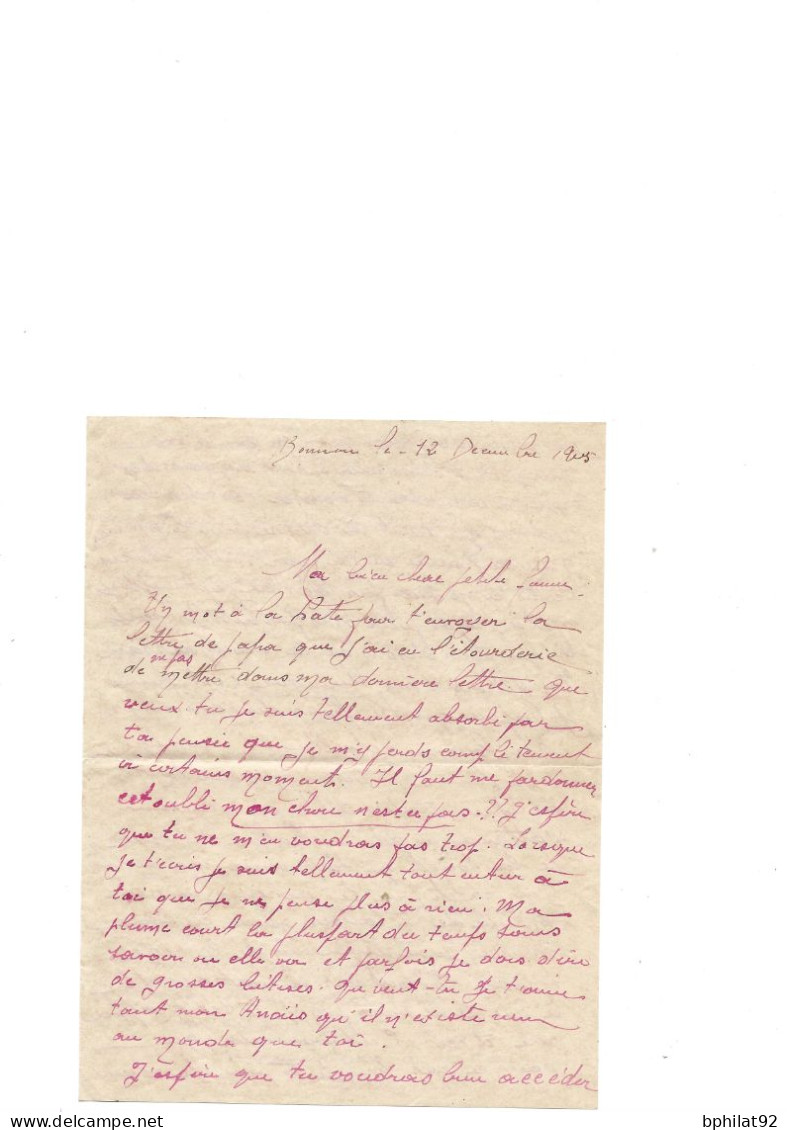 le - 12 Decembre 1905
Ma bien chere petite
Un mot à la hate pour t'envoyer la
lettre de papa que j'ai eu l'étourderie
ne pas
de mettre dans ma dernière lettre. Que
veux tu je suis tellement absorbé par
ta pensée que je m'y perds complètement
à certains moments. Il faut me pardonner
cet oubli mon chou n'est ce pas -?? J'espère
que tu ne m'en voudras pas trop. Lorsque
je t'écris je suis tellement tout entier à
toi que je ne pense plus à rien. Ma
plume court la plupart du temps sans
savoir ou elle va et parfois je dois dire
de grosses bétises. Que veut-tu je t'aime
tant mon Anaïs qu'il n'existe rien
au monde que toi.
J'espère que tu voudras bien accéder
bphilat92